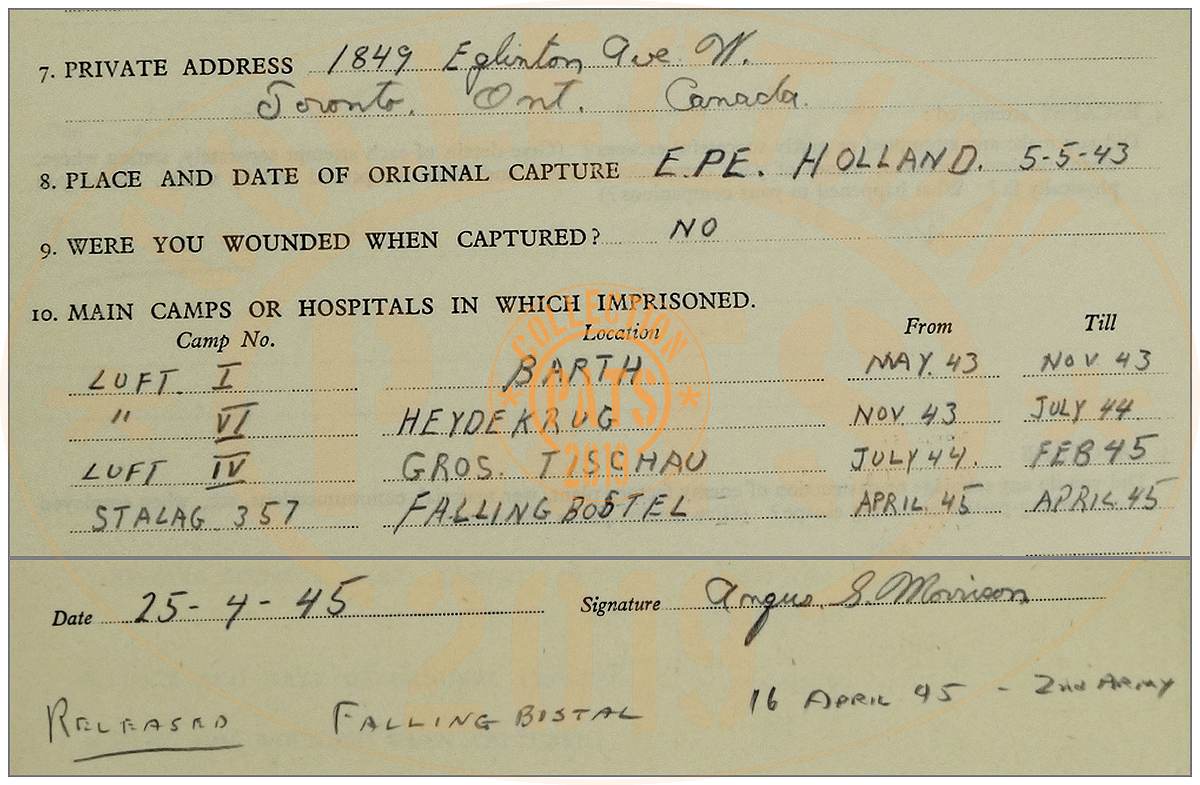 7. PRIVATE ADDRESS 1849 Eglinton Ave W.
Toronto, Ont. Canada.
8. PLACE AND DATE OF ORIGINAL CAPTURE E.PE. HOLLAND. 5-5-43
9. WERE YOU WOUNDED WHEN CAPTURED? NO
10. MAIN CAMPS OR HOSPITALS IN WHICH IMPRISONED.
Camp No. Location From Till
LUFT I BARTH MAY. 43 NOV 43
" VI HEYDEKRUG NOV. 43 JULY 44
LUFT IV GROS. TSCHAU JULY 44. FEB 45
STALAG 357 FALLINGBOSTEL APRIL 45 APRIL 45
COLLECTION
PATS
2019
Date 25-4-45 Signature Angus. S. Morrison
RELEASED FALLINGBOSTAL 16 APRIL 45 - 2ND ARMY